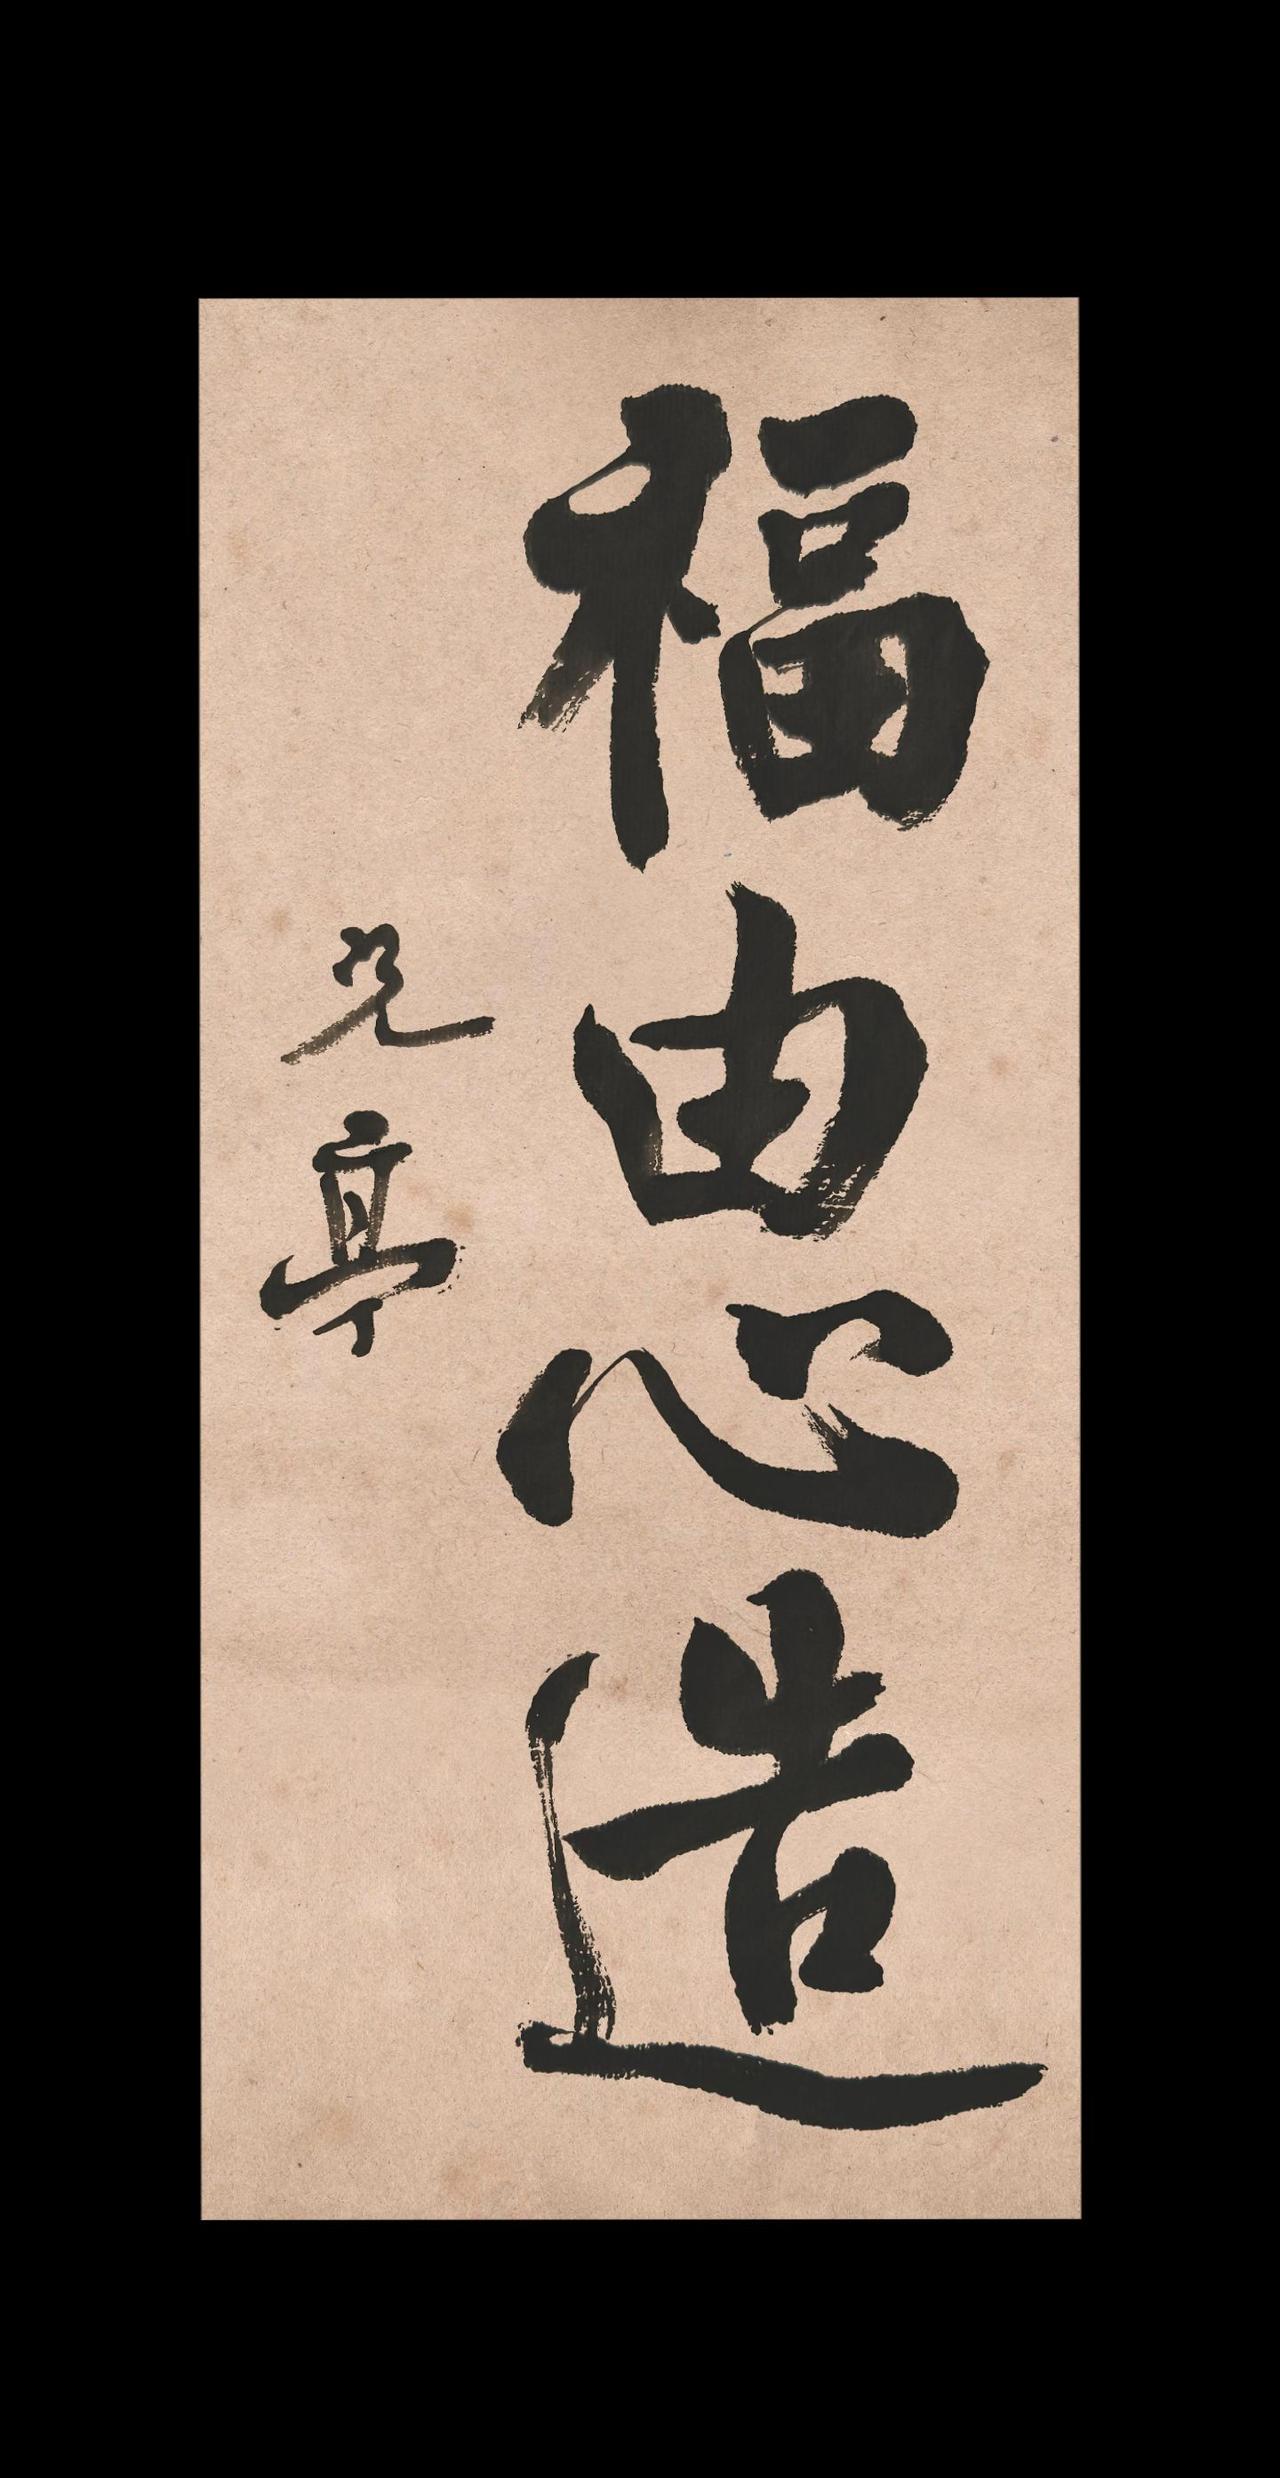 福由心造
兄亭